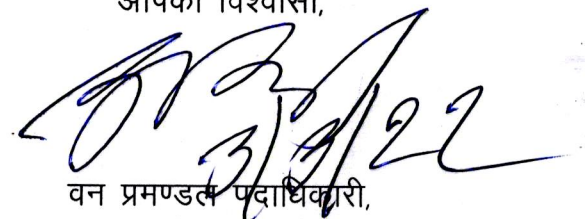 आपका विश्वासी,
3/3/22
वन प्रमण्डल पदाधिकारी,